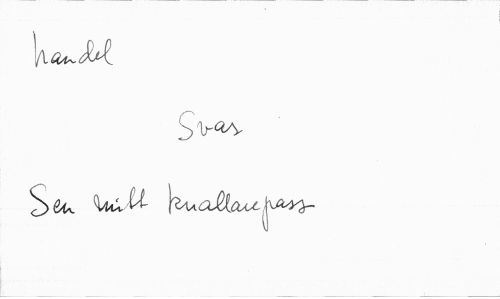 handel
Svar
Sen mitt knallarepass